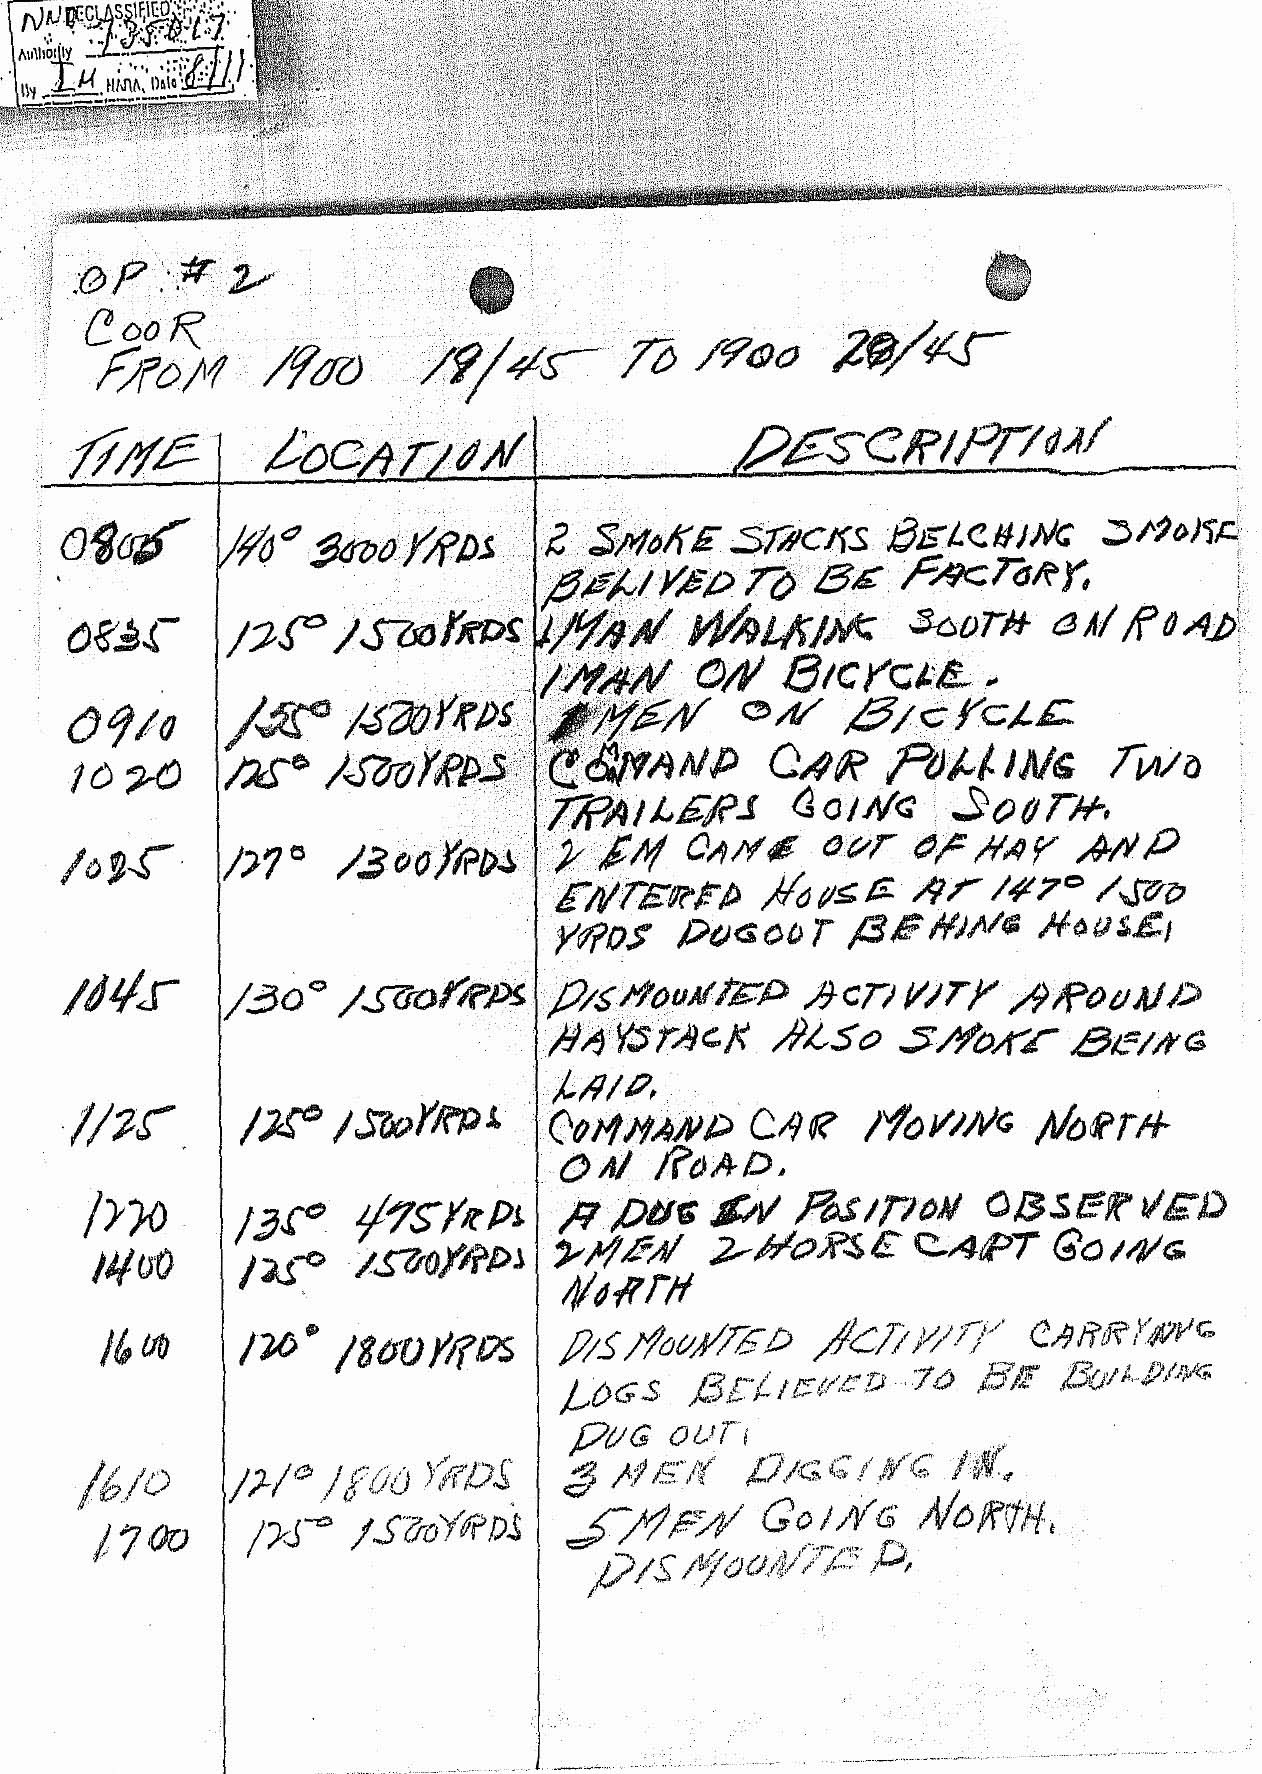 DECLASSIFIED
Authority 735017
By IM NARA, Date 8/11
OP # 2
COOR
FROM 1900 18/45 TO 1900 /45
TIME LOCATION DESCRIPTION
0805 140° 3000 YRDS 2 SMOKE STACKS BELCHING SMOKE
BELIVED TO BE FACTORY.
0835 125° 1500 YRDS 1 MAN WALKING SOUTH ON ROAD
1 MAN ON BICYCLE.
0910 1500 YRDS MEN ON BICYCLE
1020 125° 1500 YRDS COMMAND CAR PULLING TWO
TRAILERS GOING SOUTH.
1025 127° 1300 YRDS 2 EM CAME OUT OF HAY AND
ENTERED HOUSE AT 147° 1500
YRDS DUGOUT BEHING HOUSE.
1045 130° 1500 YRDS DISMOUNTED ACTIVITY AROUND
HAYSTACK ALSO SMOKE BEING
LAID.
1125 125° 1500 YRDS COMMAND CAR MOVING NORTH
ON ROAD.
1220 135° 475 YRDS A DUG IN POSITION OBSERVED
1400 125° 1500 YRDS 2 MEN 2 HORSE CART GOING
NORTH
1600 120° 1800 YRDS DISMOUNTED ACTIVITY CARRYING
LOGS BELIEVED TO BE BUILDING
DUG OUT.
1610 121° 1800 YRDS 3 MEN DIGGING IN.
1700 125° 1500 YRDS 5 MEN GOING NORTH.
DISMOUNTED.